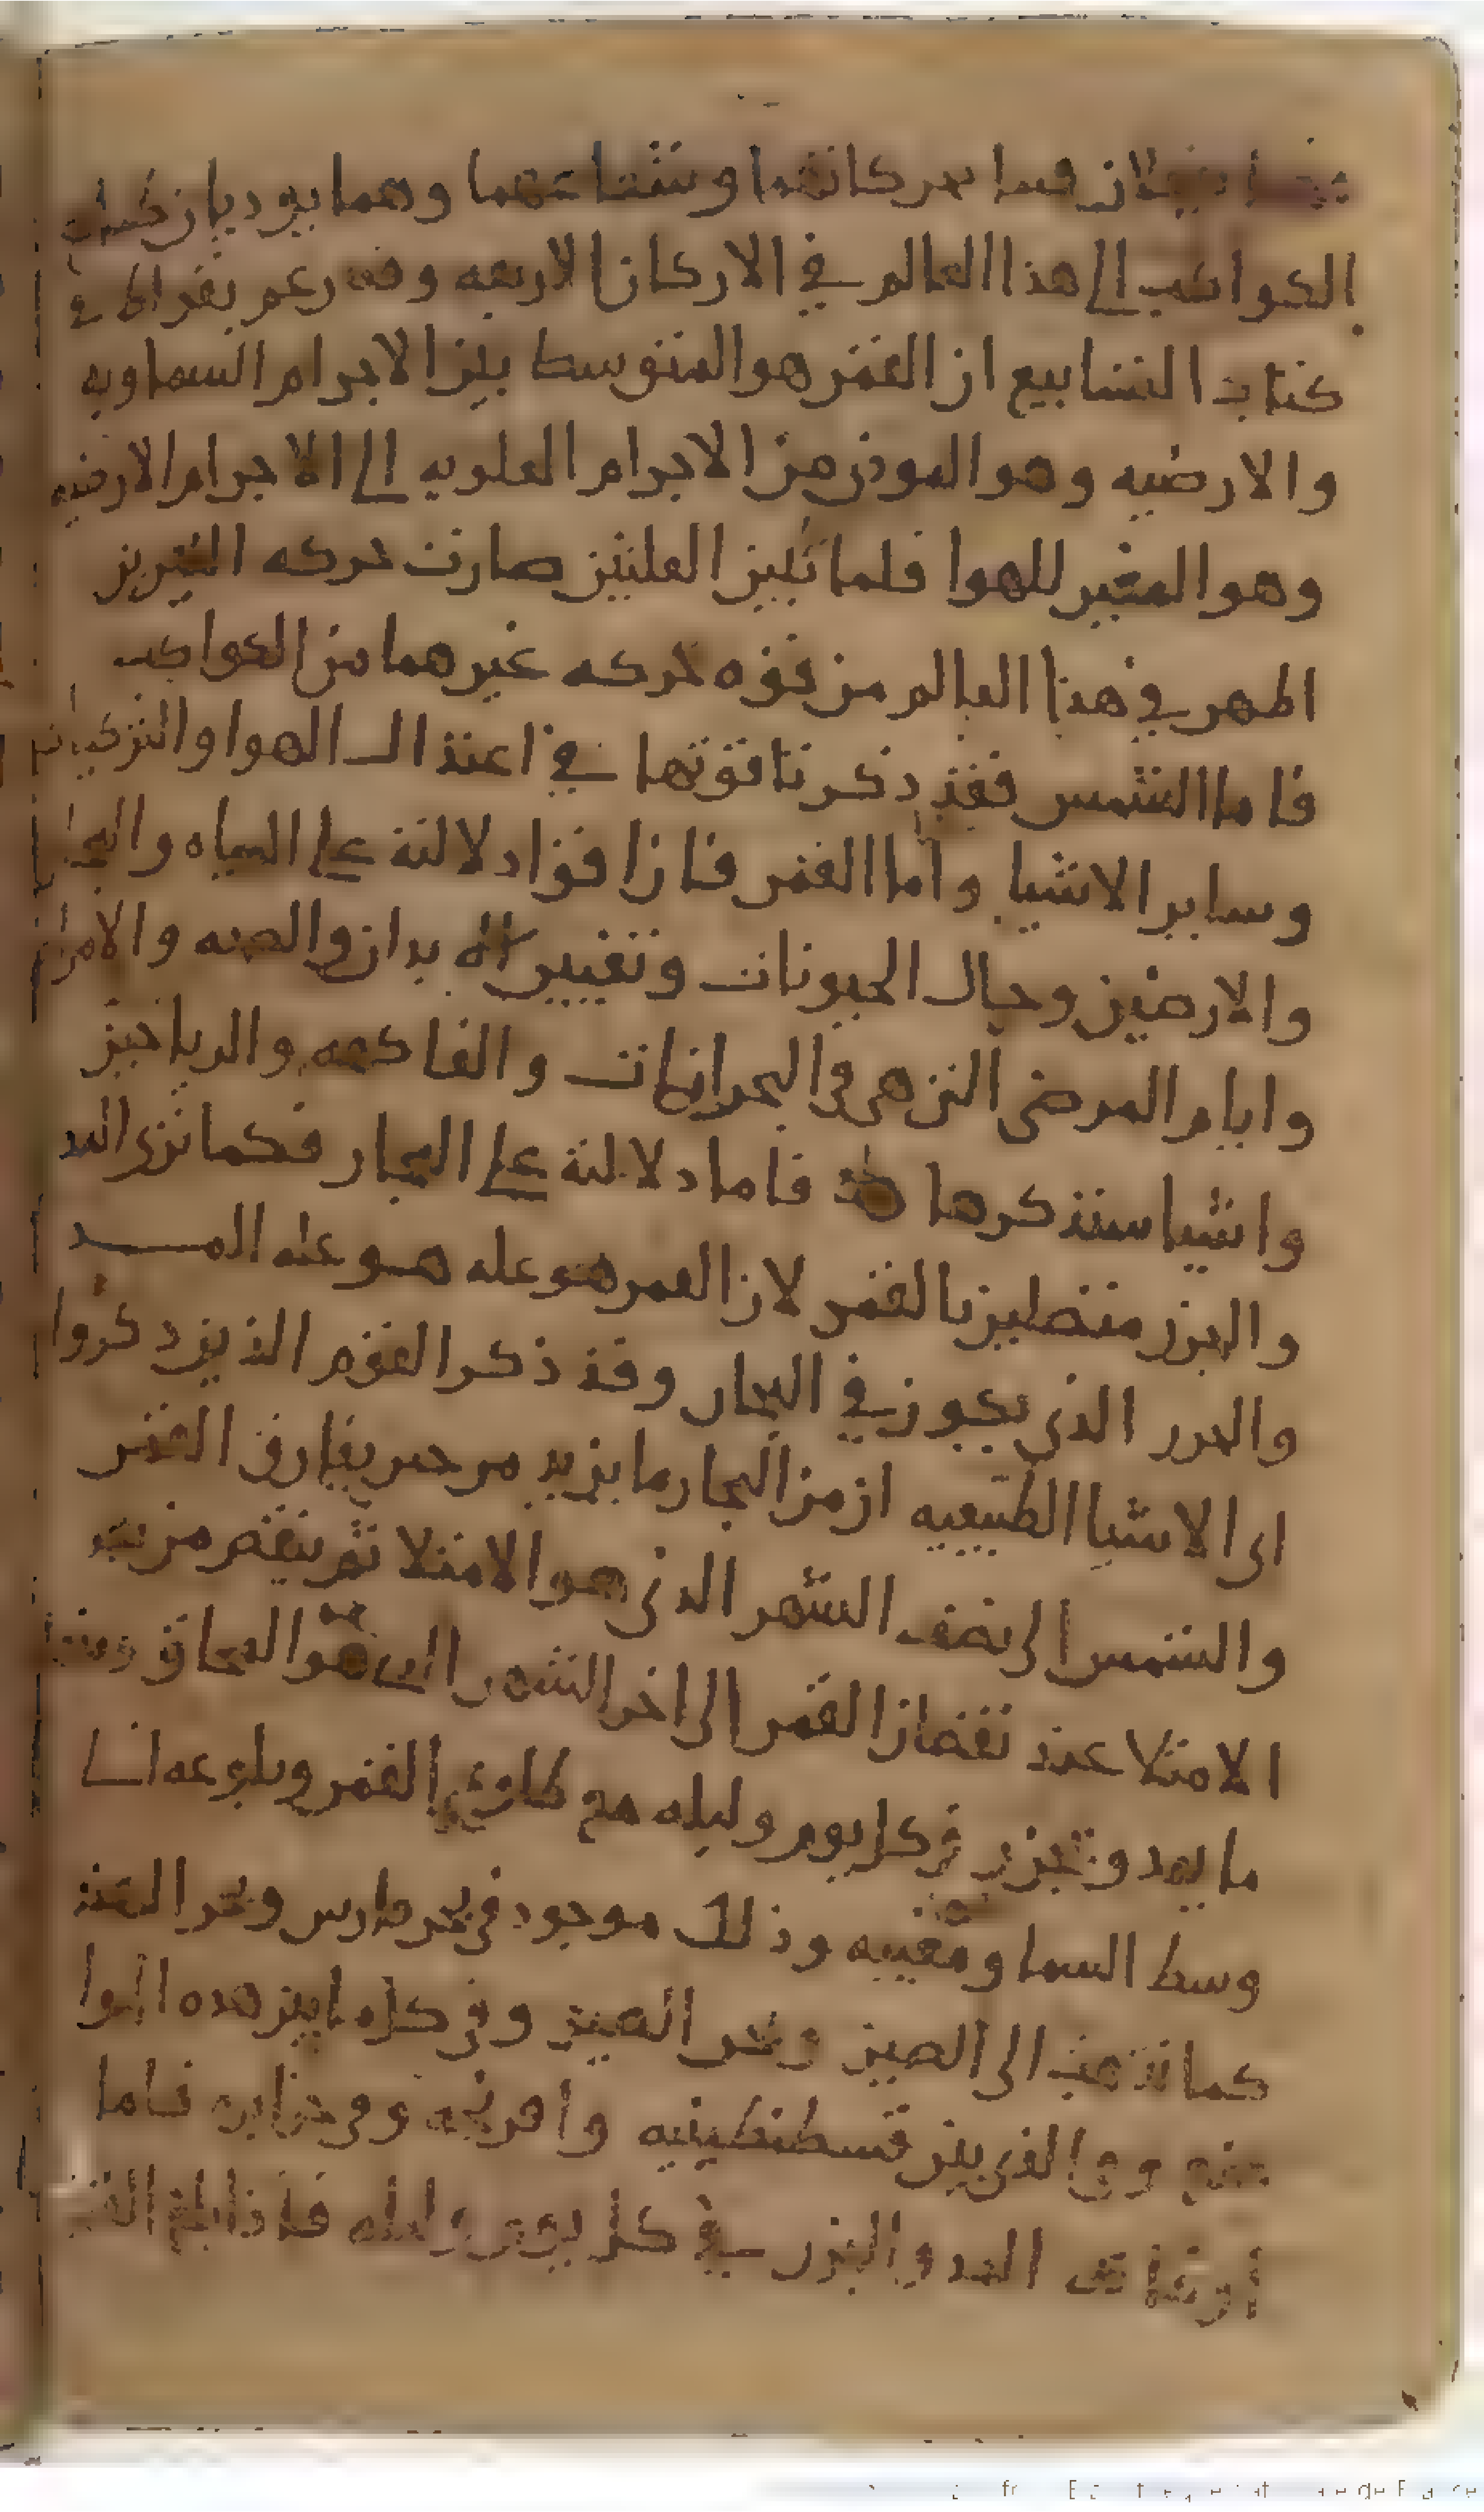 فيها بحركاتهما وشعاعهما وهما يوديان
الكواكب الى هذا العالم في الاركان الاربعه وقد زعم بقراط في
كتاب السابيع ان القمر هو المتوسط بين الاجرام السماويه
والارضيه وهو المودي من الاجرام العلويه الى الاجرام الارضيه
وهو المغير للهوا فلما تين العلتين صارت حركه النيرين
اطهر في هذا العالم من قوه حركه غيرهما من الكواكب
فاما الشمس فقد ذكرنا قوتها في اعتدال الهوا والتركيبات
وساير الاشيا واما القمر فان اقوا دلالته على المياه والبحار
والارضين وحال الحيونات وتغيير الابدان والصحه والامراض
وايام المرضى التي هي البحرانات والفاكهه والرياحين
واشيا سنذكرها فاما دلالته على البحار فكما نرى المد
والجزر متصلين بالقمر لان القمر هو عله هو عله المد
والجزر الذي يكون في البحار وقد ذكر القوم الذين ذكروا
اى الاشيا الطبيعيه ان من البحار ما يزيد من حين يفارق القمر
والشمس الى نصف الشهر الذي هو الامتلا ثم ينقص من بعد
الامتلا عند نقصان القمر الى اخر الشهر الذي هو المحاق ومنها
ما يمد ويجزر في كل يوم وليله مع طلوع القمر وبلوغه الى
وسط السما ومغيبه وذلك موجود في بحر فارس وبحر الهند
كما تذهب الى الصين وبحر الصين وفي كل ما بين هذه
الذي بين قسطنطينيه وافرنجه وفي جزاير فاما
اوقات المد والجزر في كل يوم وليله فاذا بلغ القمر